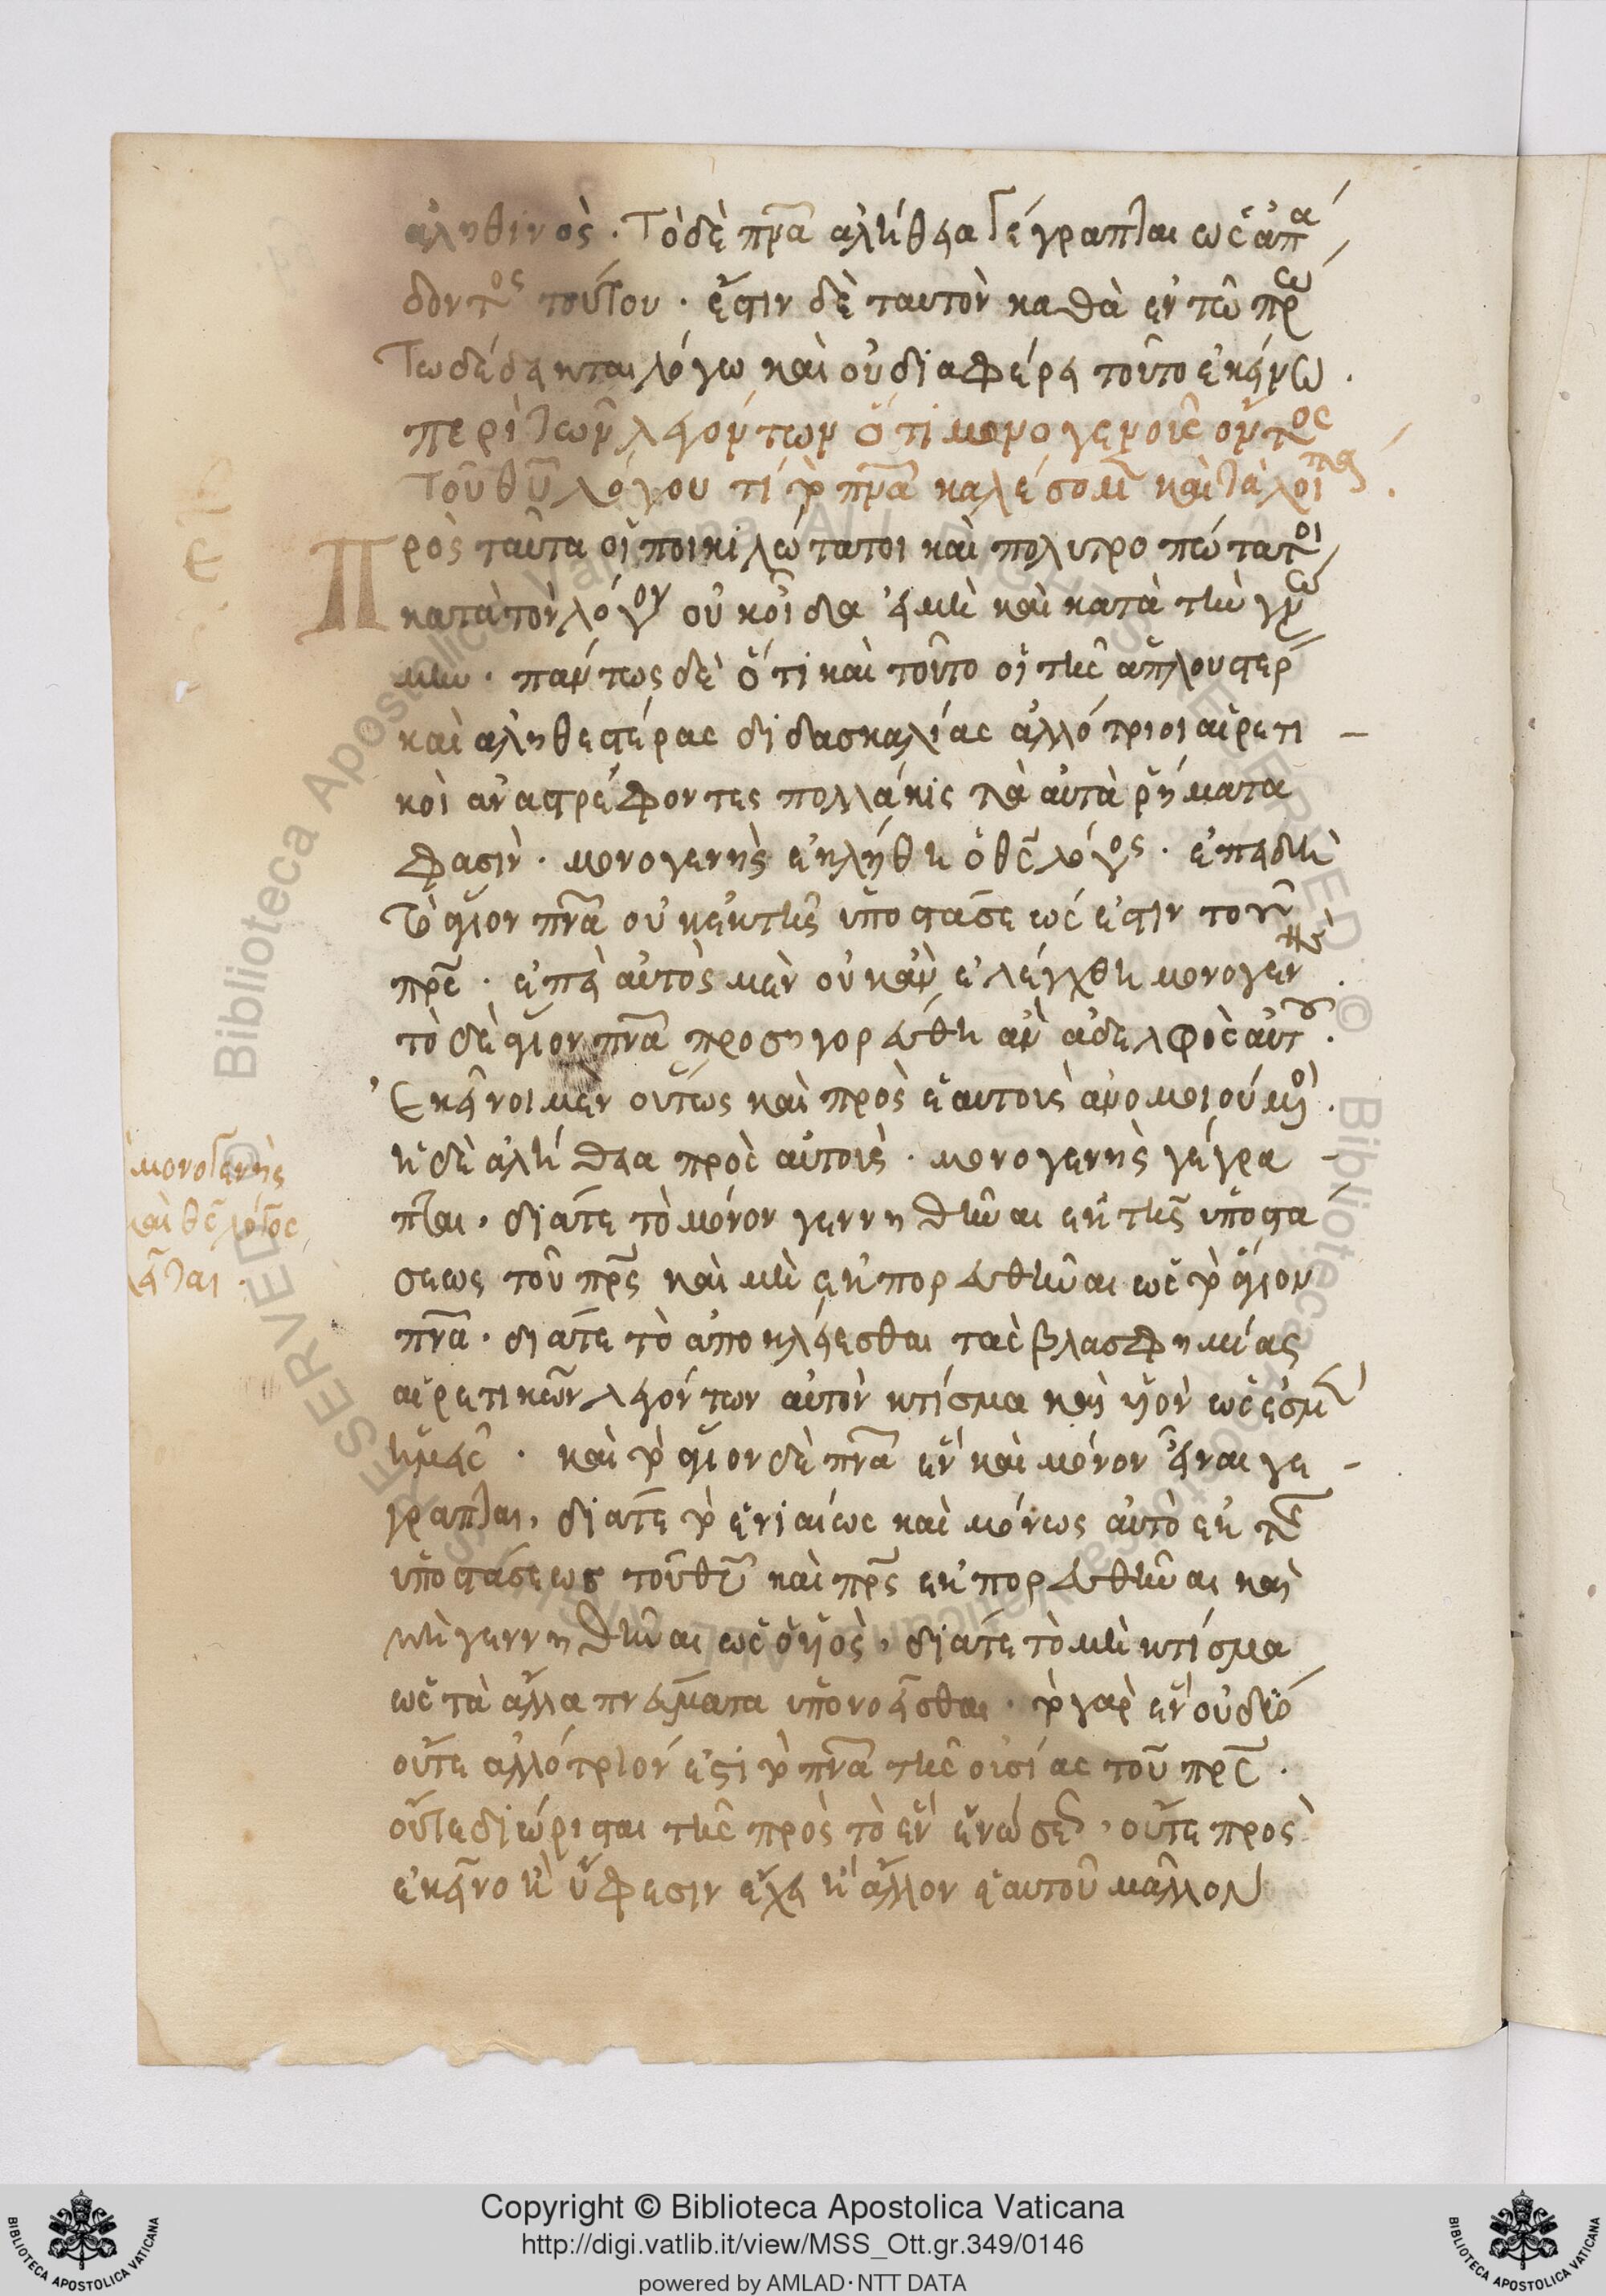 ἀληθινὸς · Τὸ δὲ πνα ἀλήθεια γέγραπται ὡς ἀπα
δοντος τούτου · ἔστιν δὲ ταυτὸν καθὰ ἐν τῶ πρω
τω δέδεικται λόγω καὶ οὐ διαφέρει τοῦτο ἐκείνω .
περὶ τῶν λεγόντων ὅτι μονογενοῦς ὄντος
τοῦ θυ λόγου τί τὸ πνα καλέσομεν καὶ τὰ λοιπά .
Πρὸς ταῦτα οἱ ποικιλώτατοι καὶ πολυτροπώτατοι
κατὰ τὸν λόγον οὐκ οἶδα εἰ μὴ καὶ κατὰ τὴν γνω
μην · πάντως δὲ ὅτι καὶ τοῦτο οἱ τῆς ἁπλουστερ
καὶ ἀληθεστέρας διδασκαλίας ἀλλότριοι αἱρετι
κοὶ ἀναστρέφοντες πολλάκις τὰ αὐτὰ ῥήματα
φασὶν · μονογενὴς ἐκλήθη ὁ θς λόγος · ἐπειδὴ
τὸ ἅγιον πνα οὐκ ἐκ τῆς ὑποστάσεως ἐστιν τοῦ
πρς · ἐπεὶ αὐτὸς μὲν οὐκ ἂν ἐλέγχθη μονογενὴς .
τὸ δὲ ἅγιον πνα προσηγορεύθη ἂν ἀδελφὸς αὐτοῦ .
Ἐκεῖνοι μὲν οὕτως καὶ πρὸς ἑαυτοὺς ἀνομοιούμενοι .
ἡ δὲ ἀλήθεια πρὸς αὐτοὺς · μονογενὴς γέγρα
πται, διά τε τὸ μόνον γεννηθῆναι ἐκ τῆς ὑποστά
σεως τοῦ πρς καὶ μὴ ἐκπορευθῆναι ὡς τὸ ἅγιον
πνα · διά τε τὸ ἀποκλείεσθαι τὰς βλασφημίας
αἱρετικῶν λεγόντων αὐτὸν κτίσμα καὶ υἱὸν ὡς ἐσμὲν
ἡμεῖς · καὶ τὸ ἅγιον δὲ πνα ἓν καὶ μόνον εἶναι γε
γραπται, διά τε τὸ ἑνιαίως καὶ μόνως αὐτὸ ἐκ τῆς
ὑποστάσεως τοῦ θυ καὶ πρς ἐκπορευθῆναι καὶ
μὴ γεννηθῆναι ὡς ὁ υἱὸς, διά τε τὸ μὴ κτίσμα
ὡς τὰ ἄλλα πνεύματα ὑπονοεῖσθαι · τὸ γὰρ ἓν οὐδὲ
οὔτε ἀλλότριόν ἐστι τὸ πνα τῆς οὐσίας τοῦ πρς ·
οὔτε διώρισται τῆς πρὸς τὸ ἓν ἑνώσεως, οὔτε πρὸς
ἐκεῖνο ἢ ὕφεσιν ἔχει ἢ ἄλλον ἑαυτοῦ μᾶλλον
μονογενὴς
καὶ θς λόγος
Copyright © Biblioteca Apostolica Vaticana
http://digi.vatlib.it/view/MSS_Ott.gr.349/0146
powered by AMLAD·NTT DATA
BIBLIOTECA APOSTOLICA VATICANA
BIBLIOTECA APOSTOLICA VATICANA